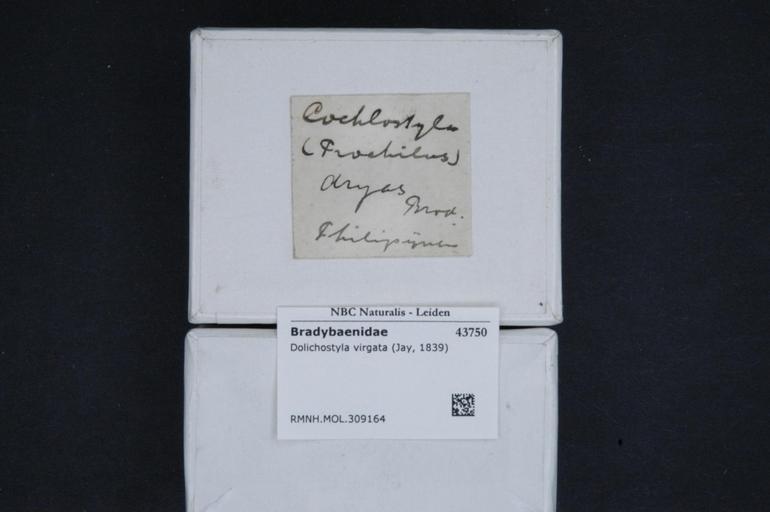 Cochlostyla
(Trochilus)
dryas
Brod.
Philippinen
NBC Naturalis - Leiden
Bradybaenidae 43750
Dolichostyla virgata (Jay, 1839)
RMNH.MOL.309164